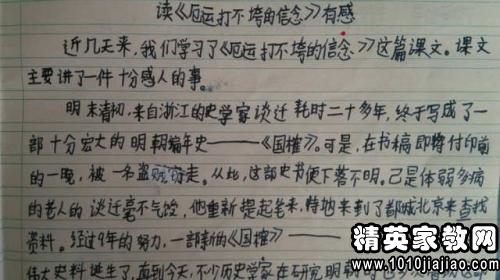 读《厄运打不垮的信念》有感
近几天来，我们学习了《厄运打不垮的信念》这篇课文。课文
主要讲了一件十分感人的事。
明末清初，来自浙江的史学家谈迁耗时二十多年，终于写成了一
部十分宏大的明朝编年史——《国榷》。可是，在书稿即将付印前
的一晚，被一名盗贼窃走。从此，这部史书便下落不明。已是体弱多病
的老人的谈迁毫不气馁，他重新提起老来，特地来到了都城北京来查找
资料。经过9年的努力，一部新的《国榷——
伟大史料诞生了，直到今天，不少历史学家在研究明朝
精英家教网
www.1010jiajiao.com